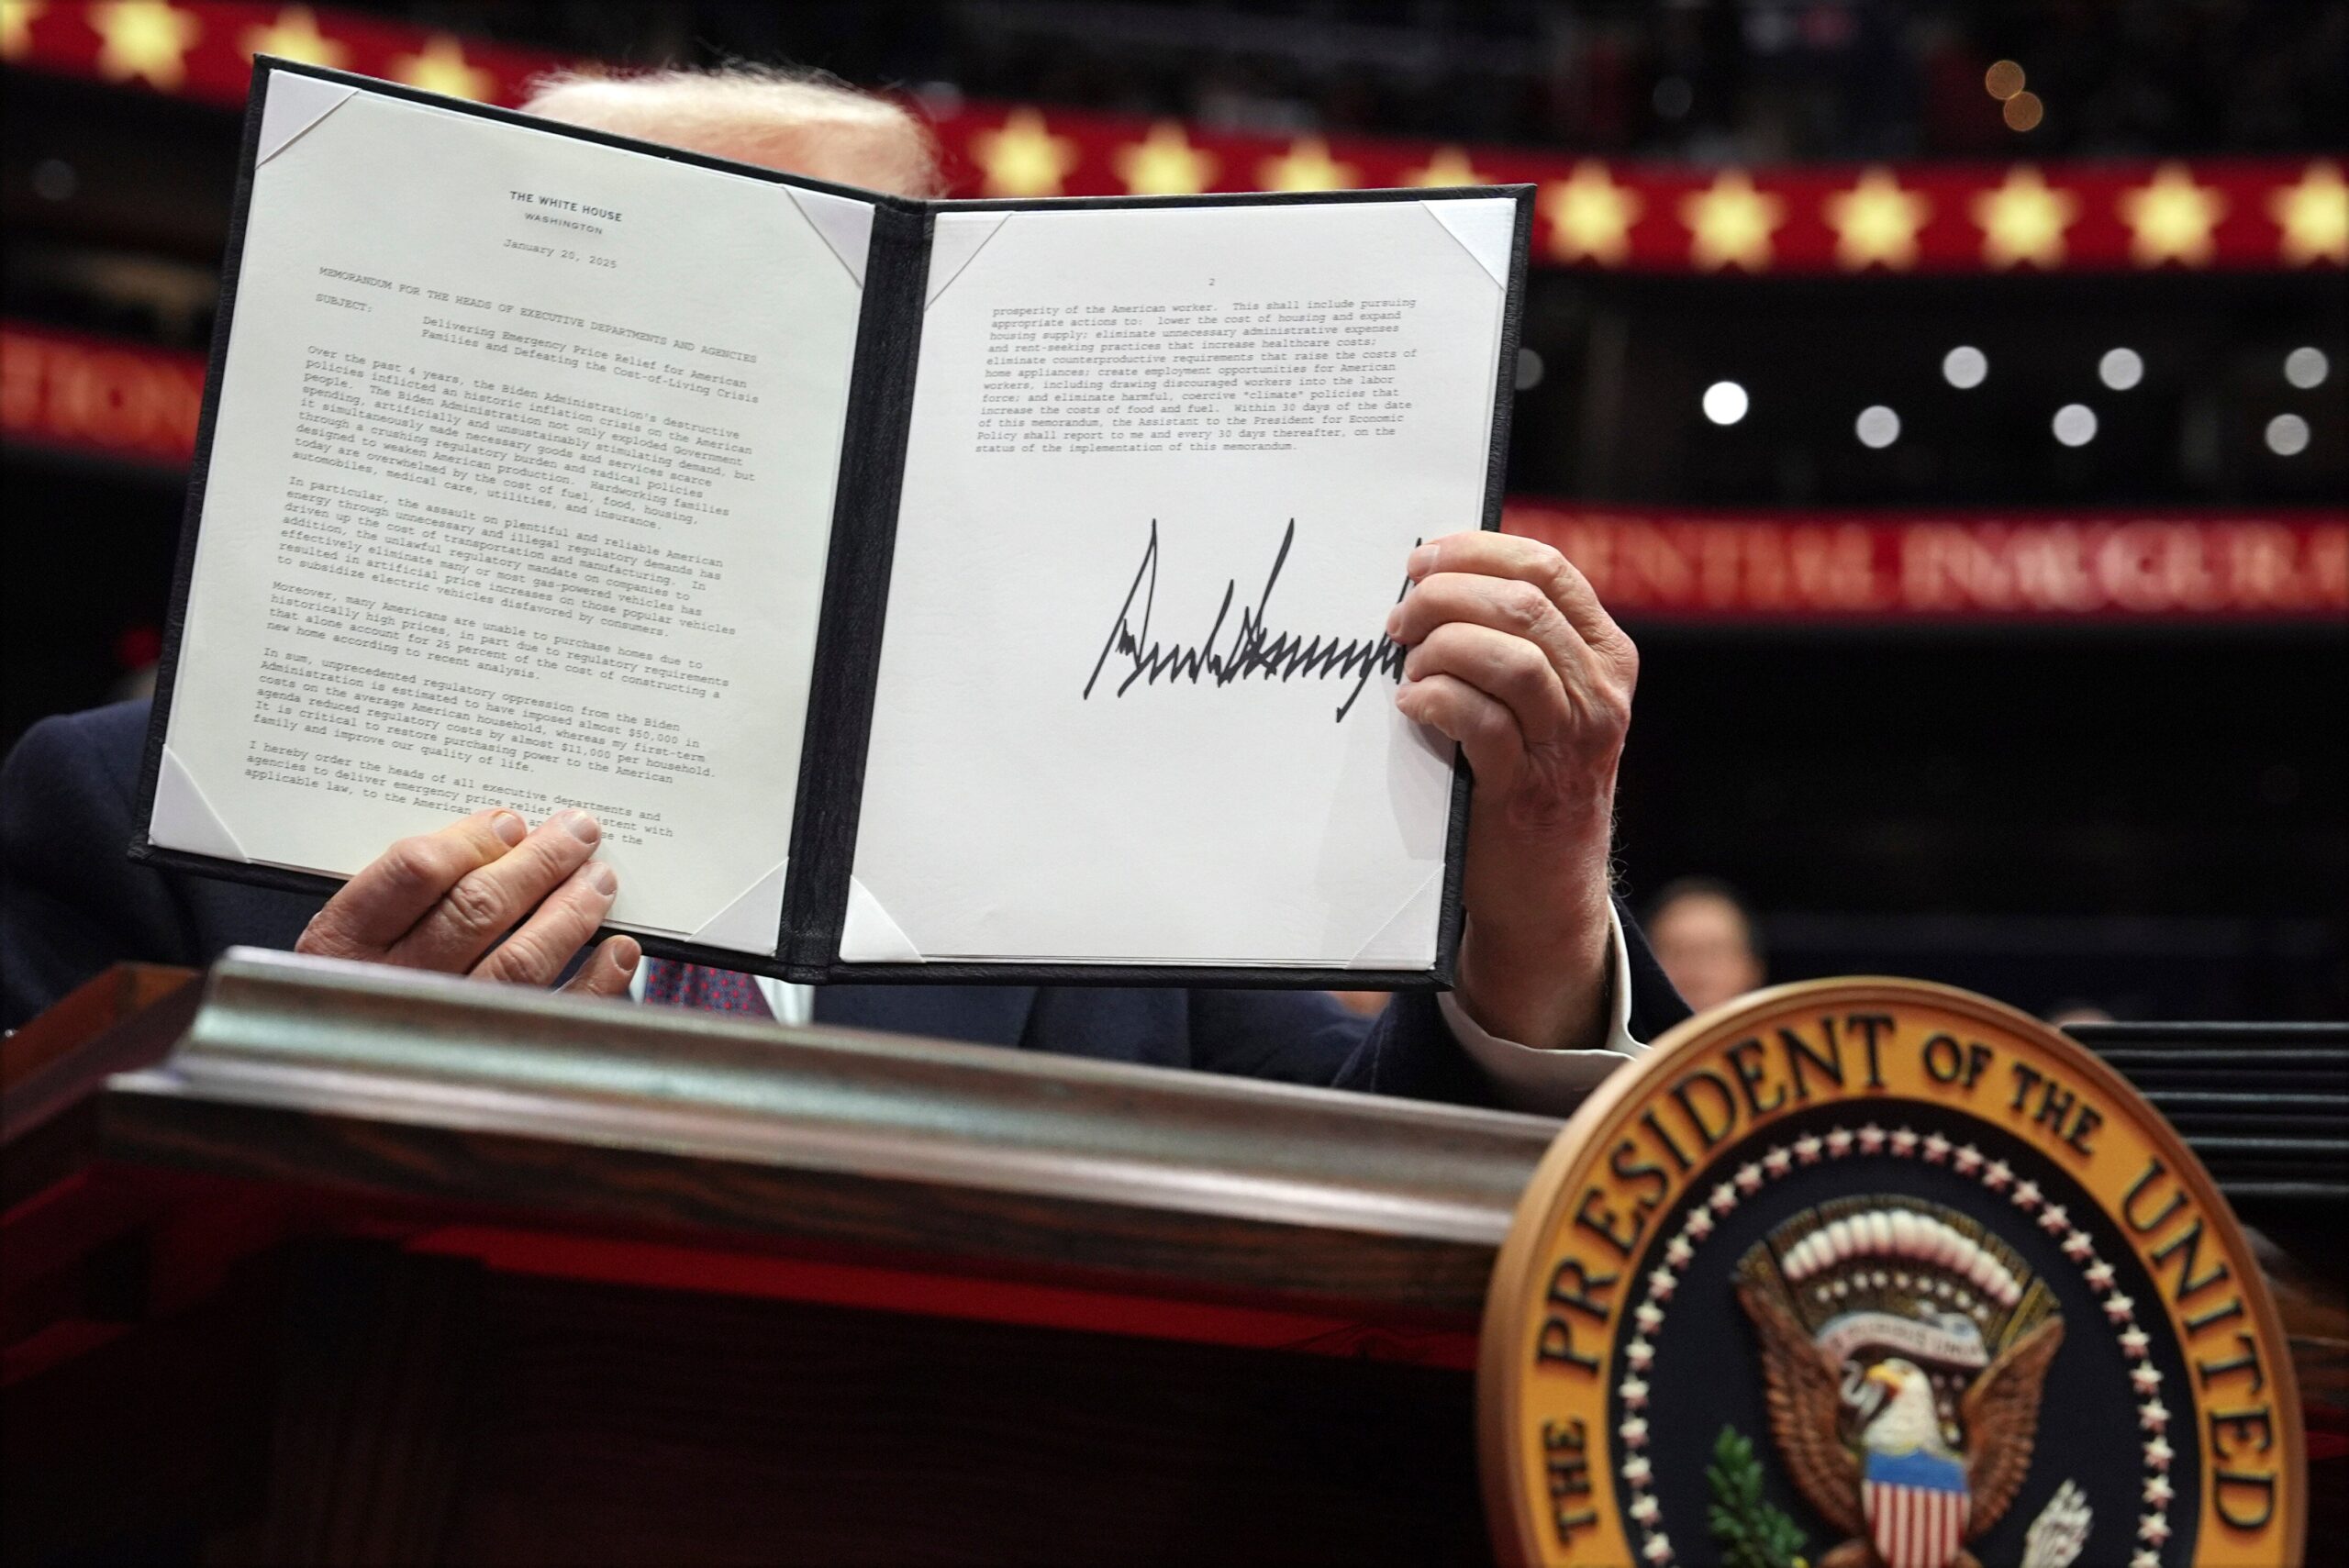 THE WHITE HOUSE
WASHINGTON
January 20, 2025
MEMORANDUM FOR THE HEADS OF EXECUTIVE DEPARTMENTS AND AGENCIES
SUBJECT:
Delivering Emergency Price Relief for American
Families and Defeating the Cost-of-Living Crisis
Over the past 4 years, the Biden Administration's destructive
policies inflicted an historic inflation crisis on the American
people. The Biden Administration not only exploded Government
spending, artificially and unsustainably stimulating demand, but
it simultaneously made necessary goods and services scarce
through a crushing regulatory burden and radical policies
designed to weaken American production. Hardworking families
today are overwhelmed by the cost of fuel, food, housing,
automobiles, medical care, utilities, and insurance.
In particular, the assault on plentiful and reliable American
energy through unnecessary and illegal regulatory demands has
driven up the cost of transportation and manufacturing. In
addition, the unlawful regulatory mandate on companies to
effectively eliminate many or most gas-powered vehicles has
resulted in artificial price increases on those popular vehicles
to subsidize electric vehicles disfavored by consumers.
Moreover, many Americans are unable to purchase homes due to
historically high prices, in part due to regulatory requirements
that alone account for 25 percent of the cost of constructing a
new home according to recent analysis.
In sum, unprecedented regulatory oppression from the Biden
Administration is estimated to have imposed almost $50,000 in
costs on the average American household, whereas my first-term
agenda reduced regulatory costs by almost $11,000 per household.
It is critical to restore purchasing power to the American
family and improve our quality of life.
I hereby order the heads of all executive departments and
agencies to deliver emergency price relief istent with
applicable law, to the American an se the
2
prosperity of the American worker. This shall include pursuing
appropriate actions to: lower the cost of housing and expand
housing supply; eliminate unnecessary administrative expenses
and rent-seeking practices that increase healthcare costs;
eliminate counterproductive requirements that raise the costs of
home appliances; create employment opportunities for American
workers, including drawing discouraged workers into the labor
force; and eliminate harmful, coercive "climate" policies that
increase the costs of food and fuel. Within 30 days of the date
of this memorandum, the Assistant to the President for Economic
Policy shall report to me and every 30 days thereafter, on the
status of the implementation of this memorandum.
ENTIAL INAUGURA
THE PRESIDENT OF THE UNITED